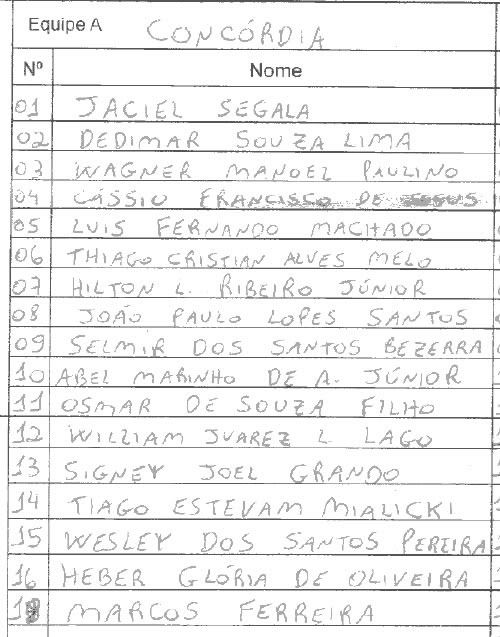 Equipe A CONCÓRDIA
Nº Nome
01 JACIEL SEGALA
02 DEDIMAR SOUZA LIMA
03 WAGNER MANOEL PAULINO
04 CÁSSIO FRANCISCO DE JESUS
05 LUIS FERNANDO MACHADO
06 THIAGO CRISTIAN ALVES MELO
07 HILTON L. RIBEIRO JÚNIOR
08 JOÃO PAULO LOPES SANTOS
09 SELMIR DOS SANTOS BEZERRA
10 ABEL MARINHO DE A. JÚNIOR
11 OSMAR DE SOUZA FILHO
12 WILLIAM JUAREZ L LAGO
13 SIGNEY JOEL GRANDO
14 TIAGO ESTEVAM MIALICKI
15 WESLEY DOS SANTOS PEREIRA
16 HEBER GLÓRIA DE OLIVEIRA
MARCOS FERREIRA